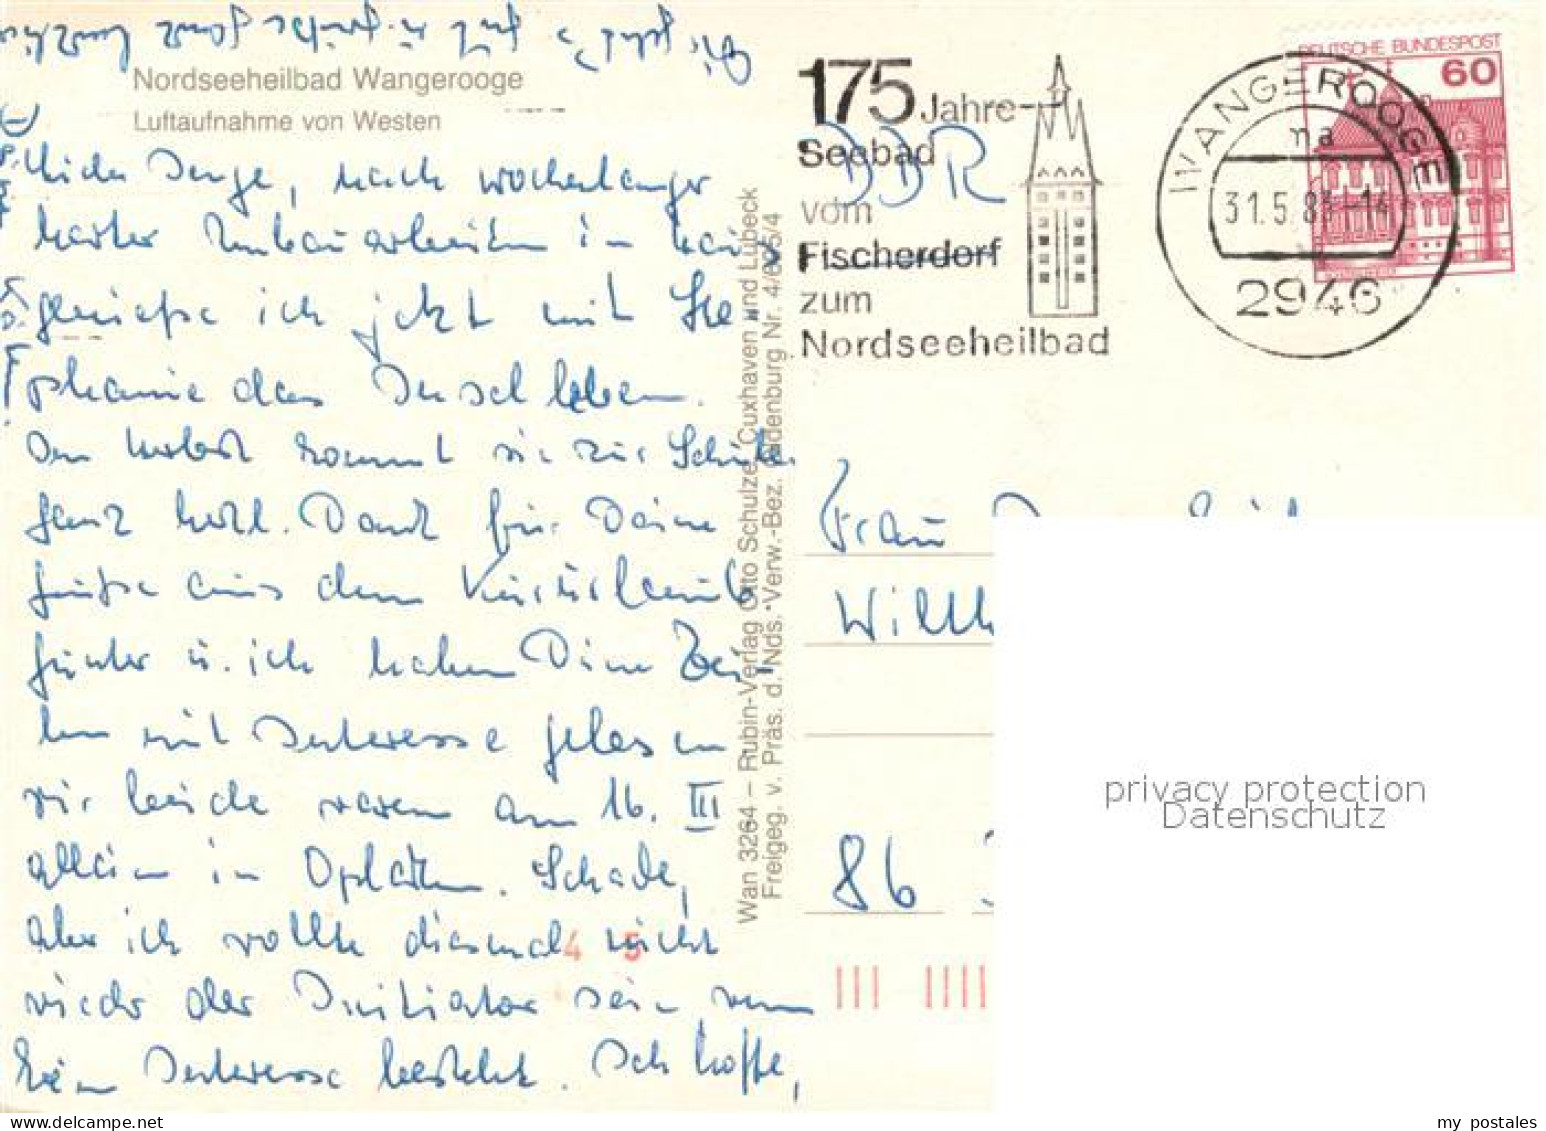 Nordseeheilbad Wangerooge
Luftaufnahme von Westen
Liebe Inge, nach wochenlanger
harter Umbauarbeiten in Haus
genieße ich jetzt mit Ste
phanie das Inselleben.
Im Herbst kommt sie zur Schule.
ganz herzl. Dank für Deine
Grüße aus dem Kurzurlaub
Günter u. ich haben Deine Zei
len mit Interesse gelesen
wir beide waren am 16. III
allein in Schade,
aber ich wollte diesmal nicht
wieder der Initiator sein wenn
kein Interesse besteht. Ich hoffe,
Dir geht's gut u. grüße Dich herzlich
Wan 3264 – Rubin-Verlag Otto Schulze, Cuxhaven und Lübeck
Freigeg. v. Präs. d. Nds. Verw.-Bez. Oldenburg Nr. 4/695/4
175 Jahre
Seebad
vom
Fischerdorf
zum
Nordseeheilbad
DDR
DEUTSCHE BUNDESPOST
60
WANGEROOGE
na
31.5.83-14
2946
Frau
Willh
86
4 5
privacy protection
Datenschutz
my postales